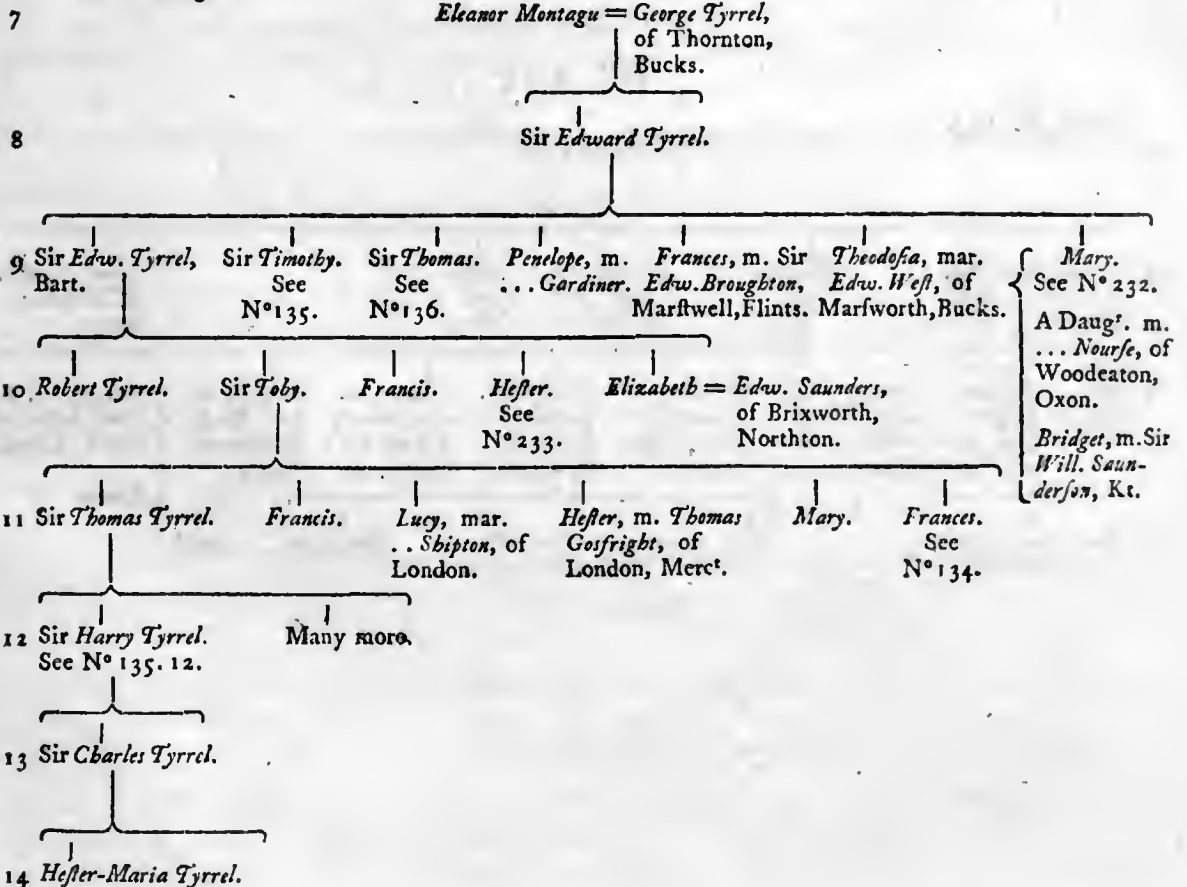 7
Eleanor Montagu = George Tyrrel,
of Thornton,
Bucks.
8
Sir Edward Tyrrel.
9 Sir Edw. Tyrrel,
Bart.
Sir Timothy.
See
N° 135.
Sir Thomas.
See
N° 136.
Penelope, m.
... Gardiner.
Frances, m. Sir
Edw. Broughton,
Marſtwell, Flints.
Theodoſia, mar.
Edw. Weſt, of
Marſworth, Bucks.
Mary.
See N° 232.
A Daugʳ. m.
... Nourſe, of
Woodeaton,
Oxon.
Bridget, m. Sir
Will. Saun-
derſon, Kt.
10 Robert Tyrrel.
Sir Toby.
Francis.
Heſter.
See
N° 233.
Elizabeth = Edw. Saunders,
of Brixworth,
Northton.
11 Sir Thomas Tyrrel.
Francis.
Lucy, mar.
.. Shipton, of
London.
Heſter, m. Thomas
Gosfright, of
London, Mercᵗ.
Mary.
Frances.
See
N° 134.
12 Sir Harry Tyrrel.
See N° 135. 12.
Many more.
13 Sir Charles Tyrrel.
14 Heſter-Maria Tyrrel.